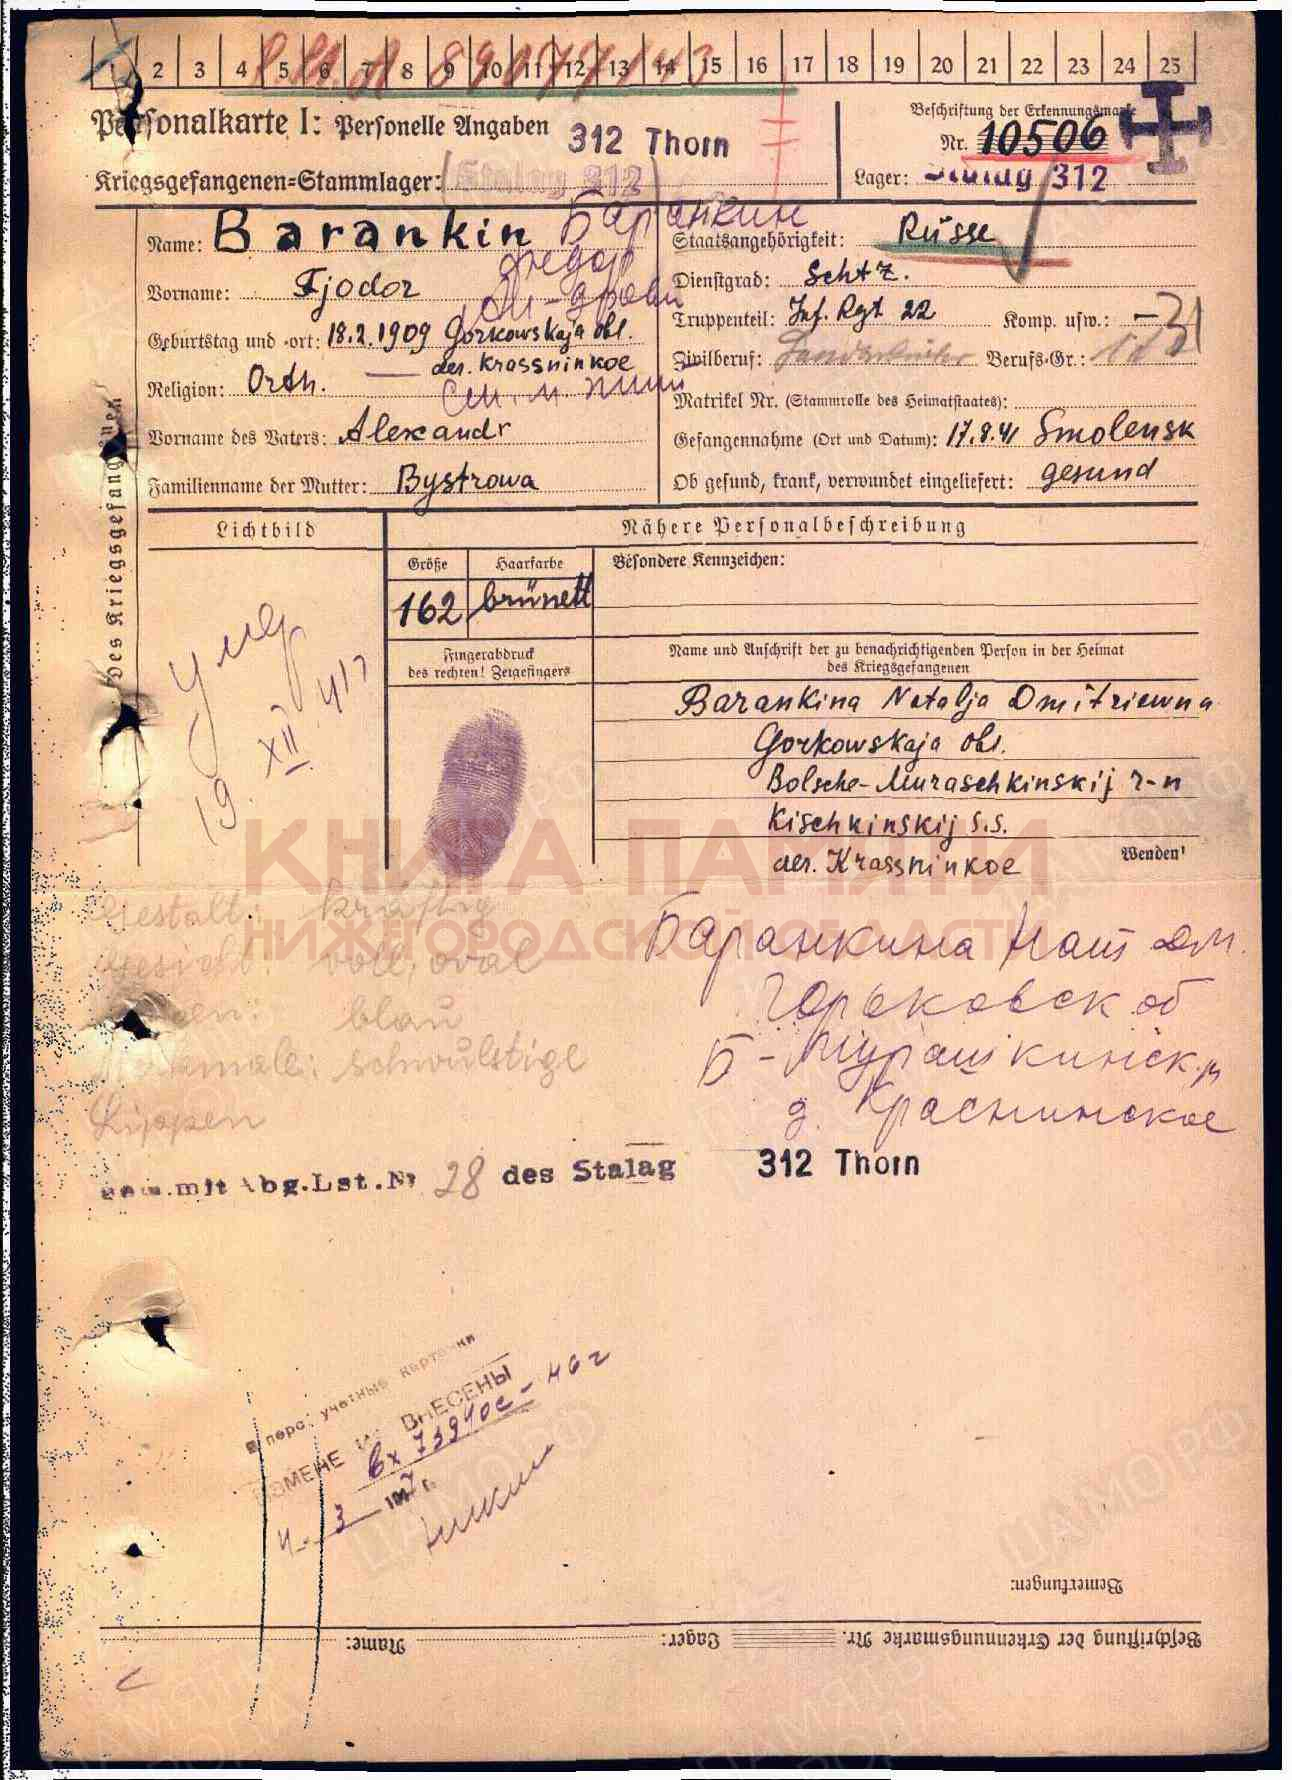 1 2 3 4 5 6 7 8 9 10 11 12 13 14 15 16 17 18 19 20 21 22 23 24 25
Personalkarte I: Personelle Angaben
312 Thorn
Beschriftung der Erkennungsmarke
Nr. 10506
Kriegsgefangenen=Stammlager: Stalag 312
Lager: Stalag 312
Name: Barankin Баранкин
Staatsangehörigkeit: Russe
Vorname: Fjodor Федор
Dienstgrad: Schtz.
Geburtstag und -ort: 18.2.1909 Gorkowskaja obl.
Truppenteil: Inf. Rgt 22 Komp. usw.: -
der. Krassninkoe
Zivilberuf: Berufs-Gr.:
Religion: Orth.
Matrikel Nr. (Stammrolle des Heimatstaates):
Vorname des Vaters: Alexandr
Gefangennahme (Ort und Datum): 17.8.41 Smolensk
Familienname der Mutter: Bystrowa
Ob gesund, krank, verwundet eingeliefert: gesund
Des Kriegsgefangenen
Lichtbild
Nähere Personalbeschreibung
Größe Haarfarbe Besondere Kennzeichen:
162 brünett
Fingerabdruck
des rechten! Zeigefingers
Name und Anschrift der zu benachrichtigenden Person in der Heimat
des Kriegsgefangenen
Barankina Natalja Dmitriewna
Gorkowskaja obl.
Bolsche-Muraschkinskij r-n
Kischkinskij s.s.
der. Krassninkoe
Wenden!
умер
19 XII 41
КНИГА ПАМЯТИ
НИЖЕГОРОДСКОЙ ОБЛАСТИ
Gestalt: kräftig
Gesicht: voll, oval
Augen: blau
Merkmale: schwulstige
Lippen
Баранкина Нат Дм.
Горьковск об
Б-Мурашкинск. р
д. Краснинское
mit Abg.Lst.Nr 28 des Stalag 312 Thorn
В перс. учетные карточки
ВНЕСЕНЫ
вх 73940с-46г
4 - 3
Bemerkungen:
Name: Lager: Beschriftung der Erkennungsmarke Nr.
ЦАМО РФ
ЦАМО РФ
ПАМЯТЬ
РОДА